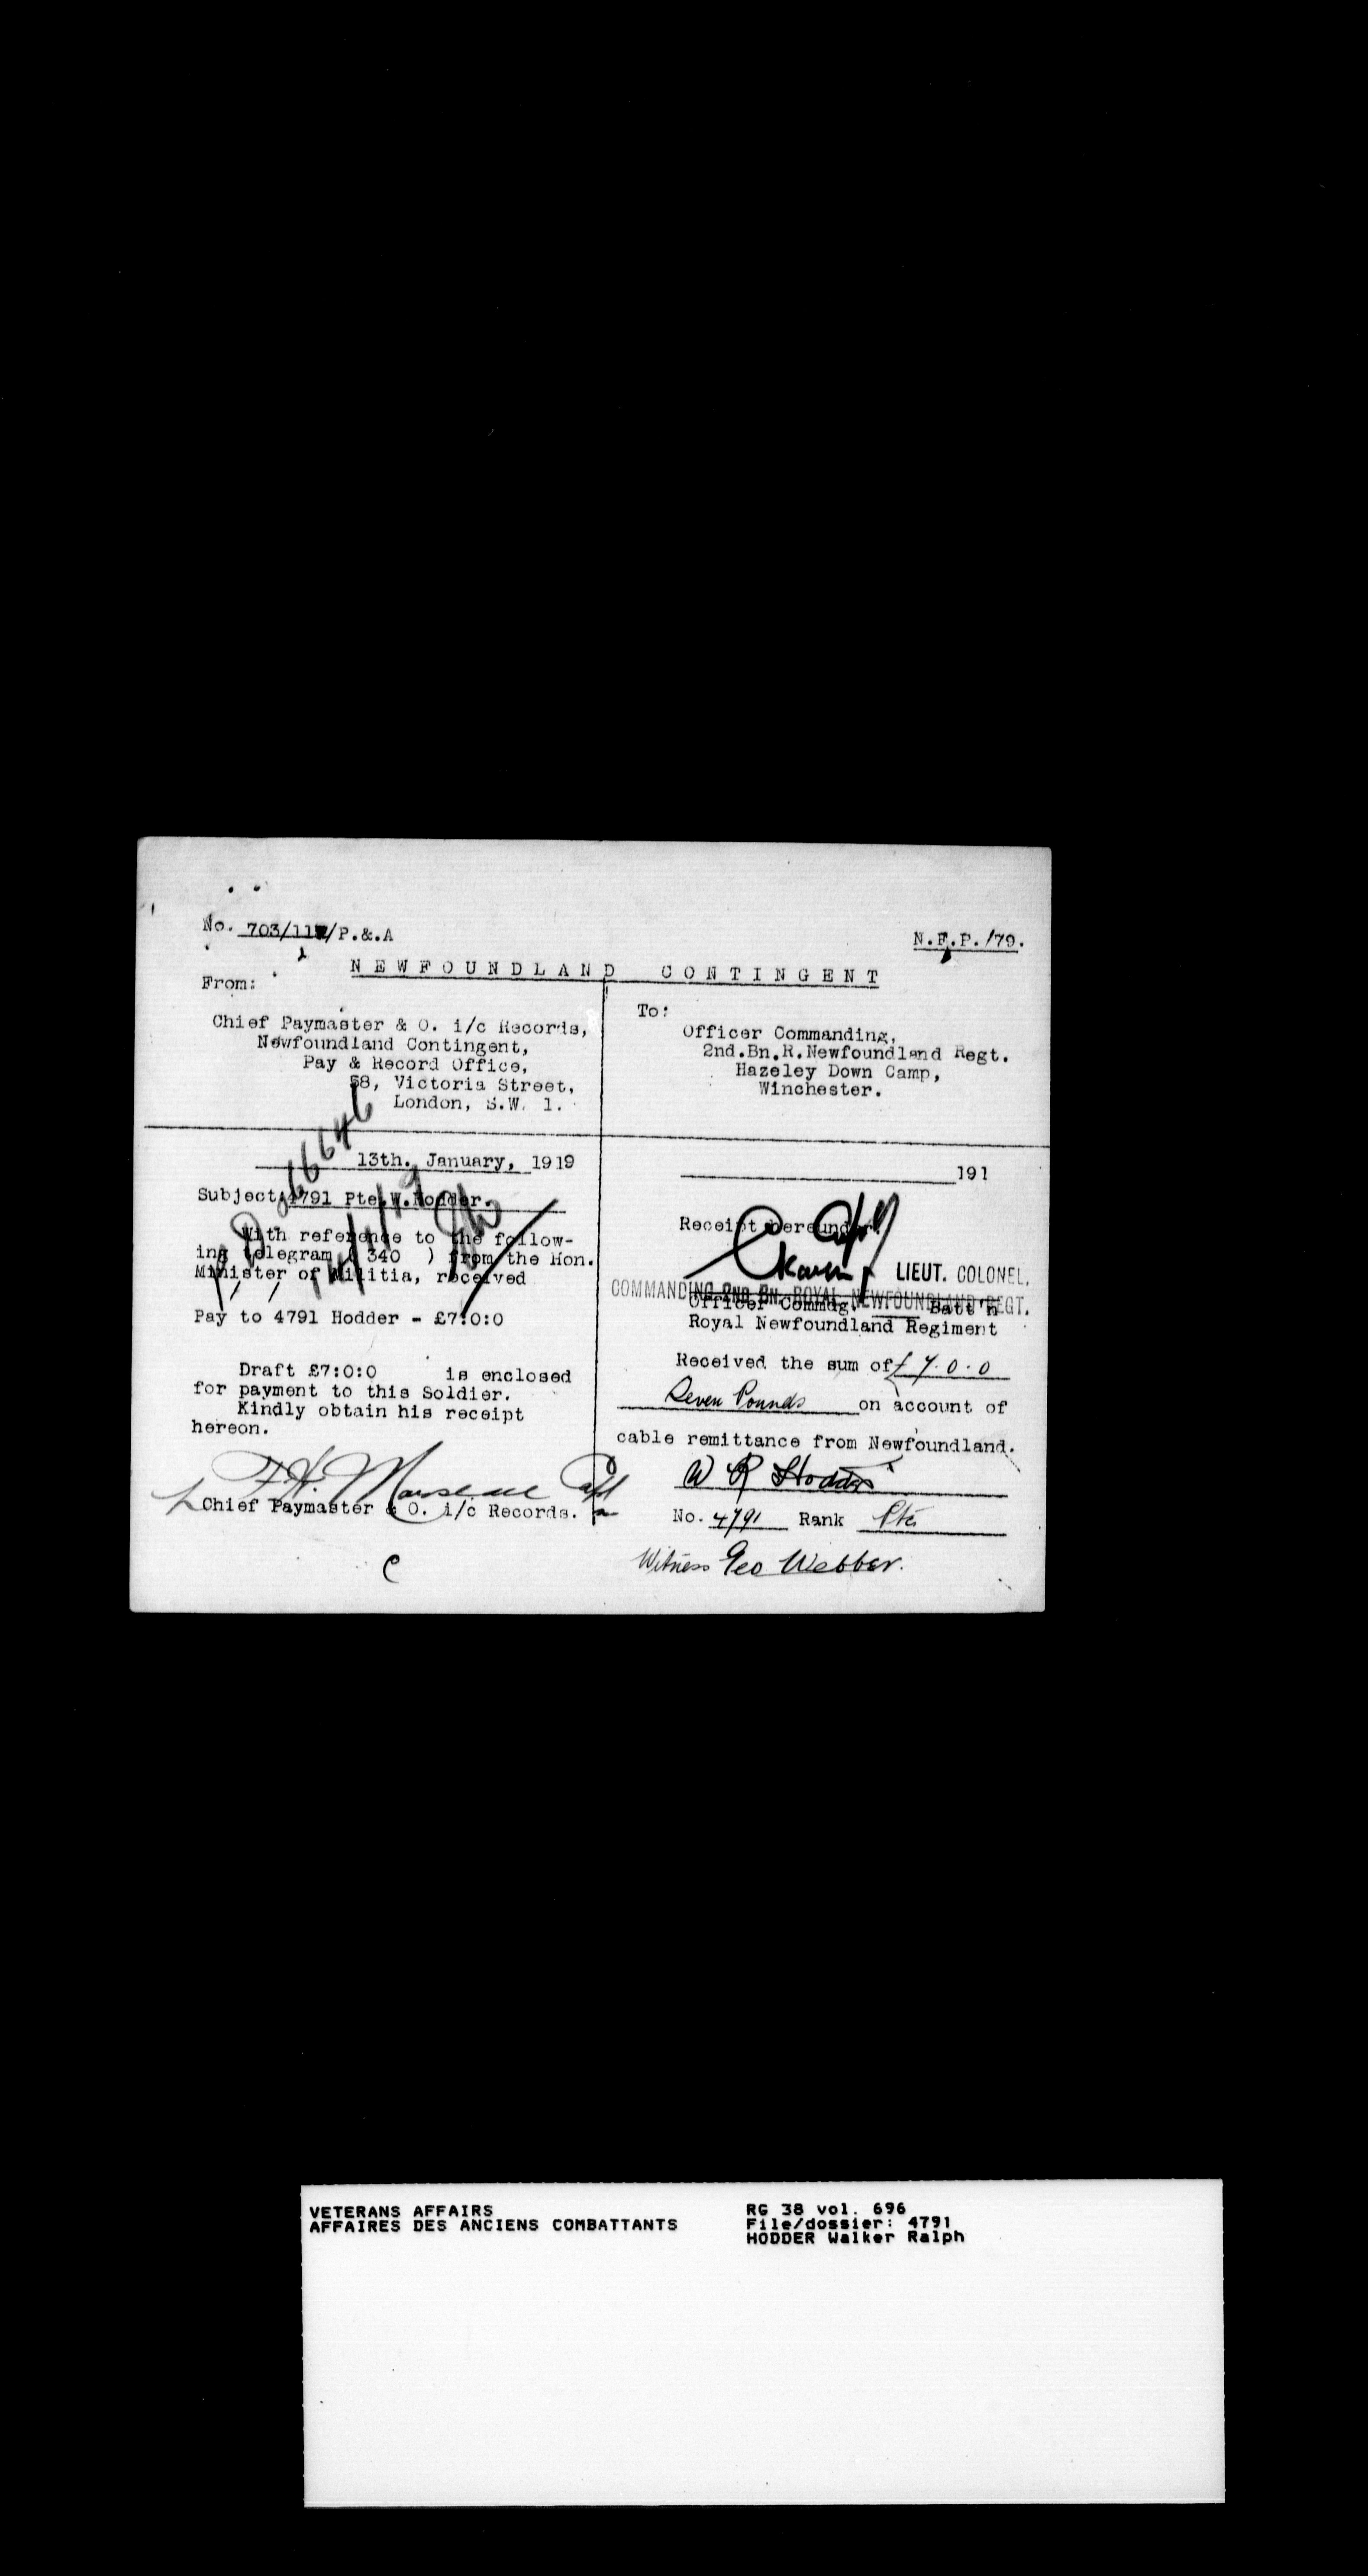 No. 703/11 /P.&.A
N.F.P./79.
NEWFOUNDLAND CONTINGENT
From:
Chief Paymaster & O. i/c Records,
Newfoundland Contingent,
Pay & Record Office,
58, Victoria Street,
London, S.W. 1.
To:
Officer Commanding,
2nd.Bn.R.Newfoundland Regt.
Hazeley Down Camp,
Winchester.
13th. January, 1919
Subject: 4791 Pte.W.Hodder.
With reference to the follow-
ing telegram ( 340 ) from the Hon.
Minister of Militia, received
Pay to 4791 Hodder - £7:0:0
Draft £7:0:0 is enclosed
for payment to this Soldier.
Kindly obtain his receipt
hereon.
Capt
Chief Paymaster & O. i/c Records.
191
Receipt hereunder.
LIEUT. COLONEL,
COMMANDING 2ND BN. ROYAL NEWFOUNDLAND REGT.
Officer Commdg. Batt'n
Royal Newfoundland Regiment
Received the sum of £ 7.0.0
Seven Pounds on account of
cable remittance from Newfoundland.
W R Hodder
No. 4791 Rank Pte
Witness Geo Webber.
VETERANS AFFAIRS
AFFAIRES DES ANCIENS COMBATTANTS
RG 38 vol. 696
File/dossier: 4791
HODDER Walker Ralph